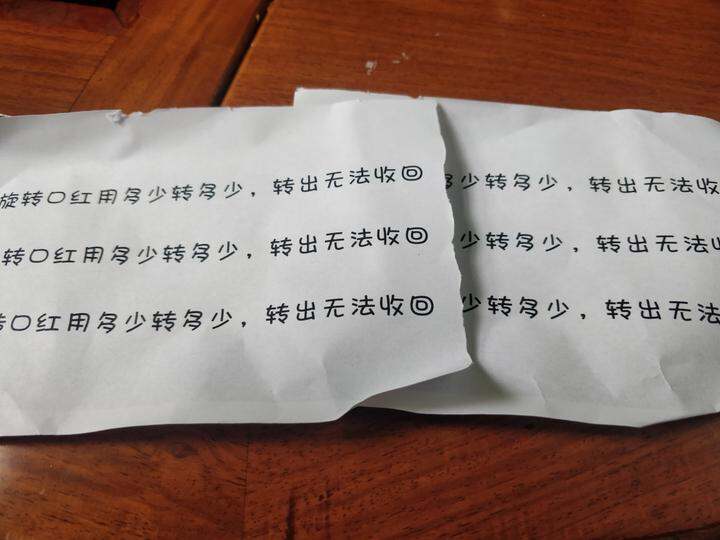 旋转口红用多少转多少，转出无法收回
转口红用多少转多少，转出无法收回
转口红用多少转多少，转出无法收回
多少转多少，转出无法收
少转多少，转出无法收
少转多少，转出无法